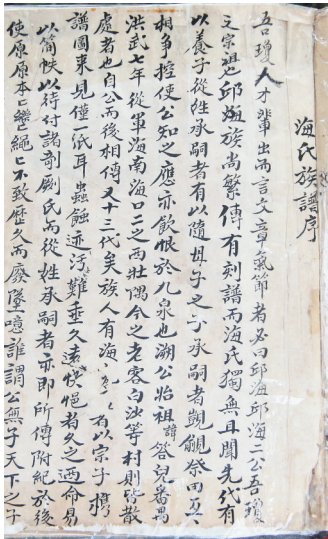 海氏族譜序
吾瓊人才輩出而言文章氣節者必曰邱海邱海二公吾瓊
之宗祖也邱姓族尚繁傳有刻譜而海氏獨無且聞先代有
以養子從姓承嗣者有以隨母子之子承嗣者覬覦祭田互
相爭控使公知之應亦飲恨於九泉也溯公始祖諱答兒番禺
洪武七年從軍海南海口二之西壯隅今之老客白沙等村則皆散
處者也自公而後相傳又十三代矣族人有海 有以宗子攜
譜圖來見僅一紙耳蟲蝕迹污難垂久遠怏悒者久之迺命易
以簡帙以待付諸剞劂氏而從姓承嗣者亦即所傳附紀於後
使原原本匕繼匕繩匕不致歷久而廢墜噫誰謂公無子天下之子